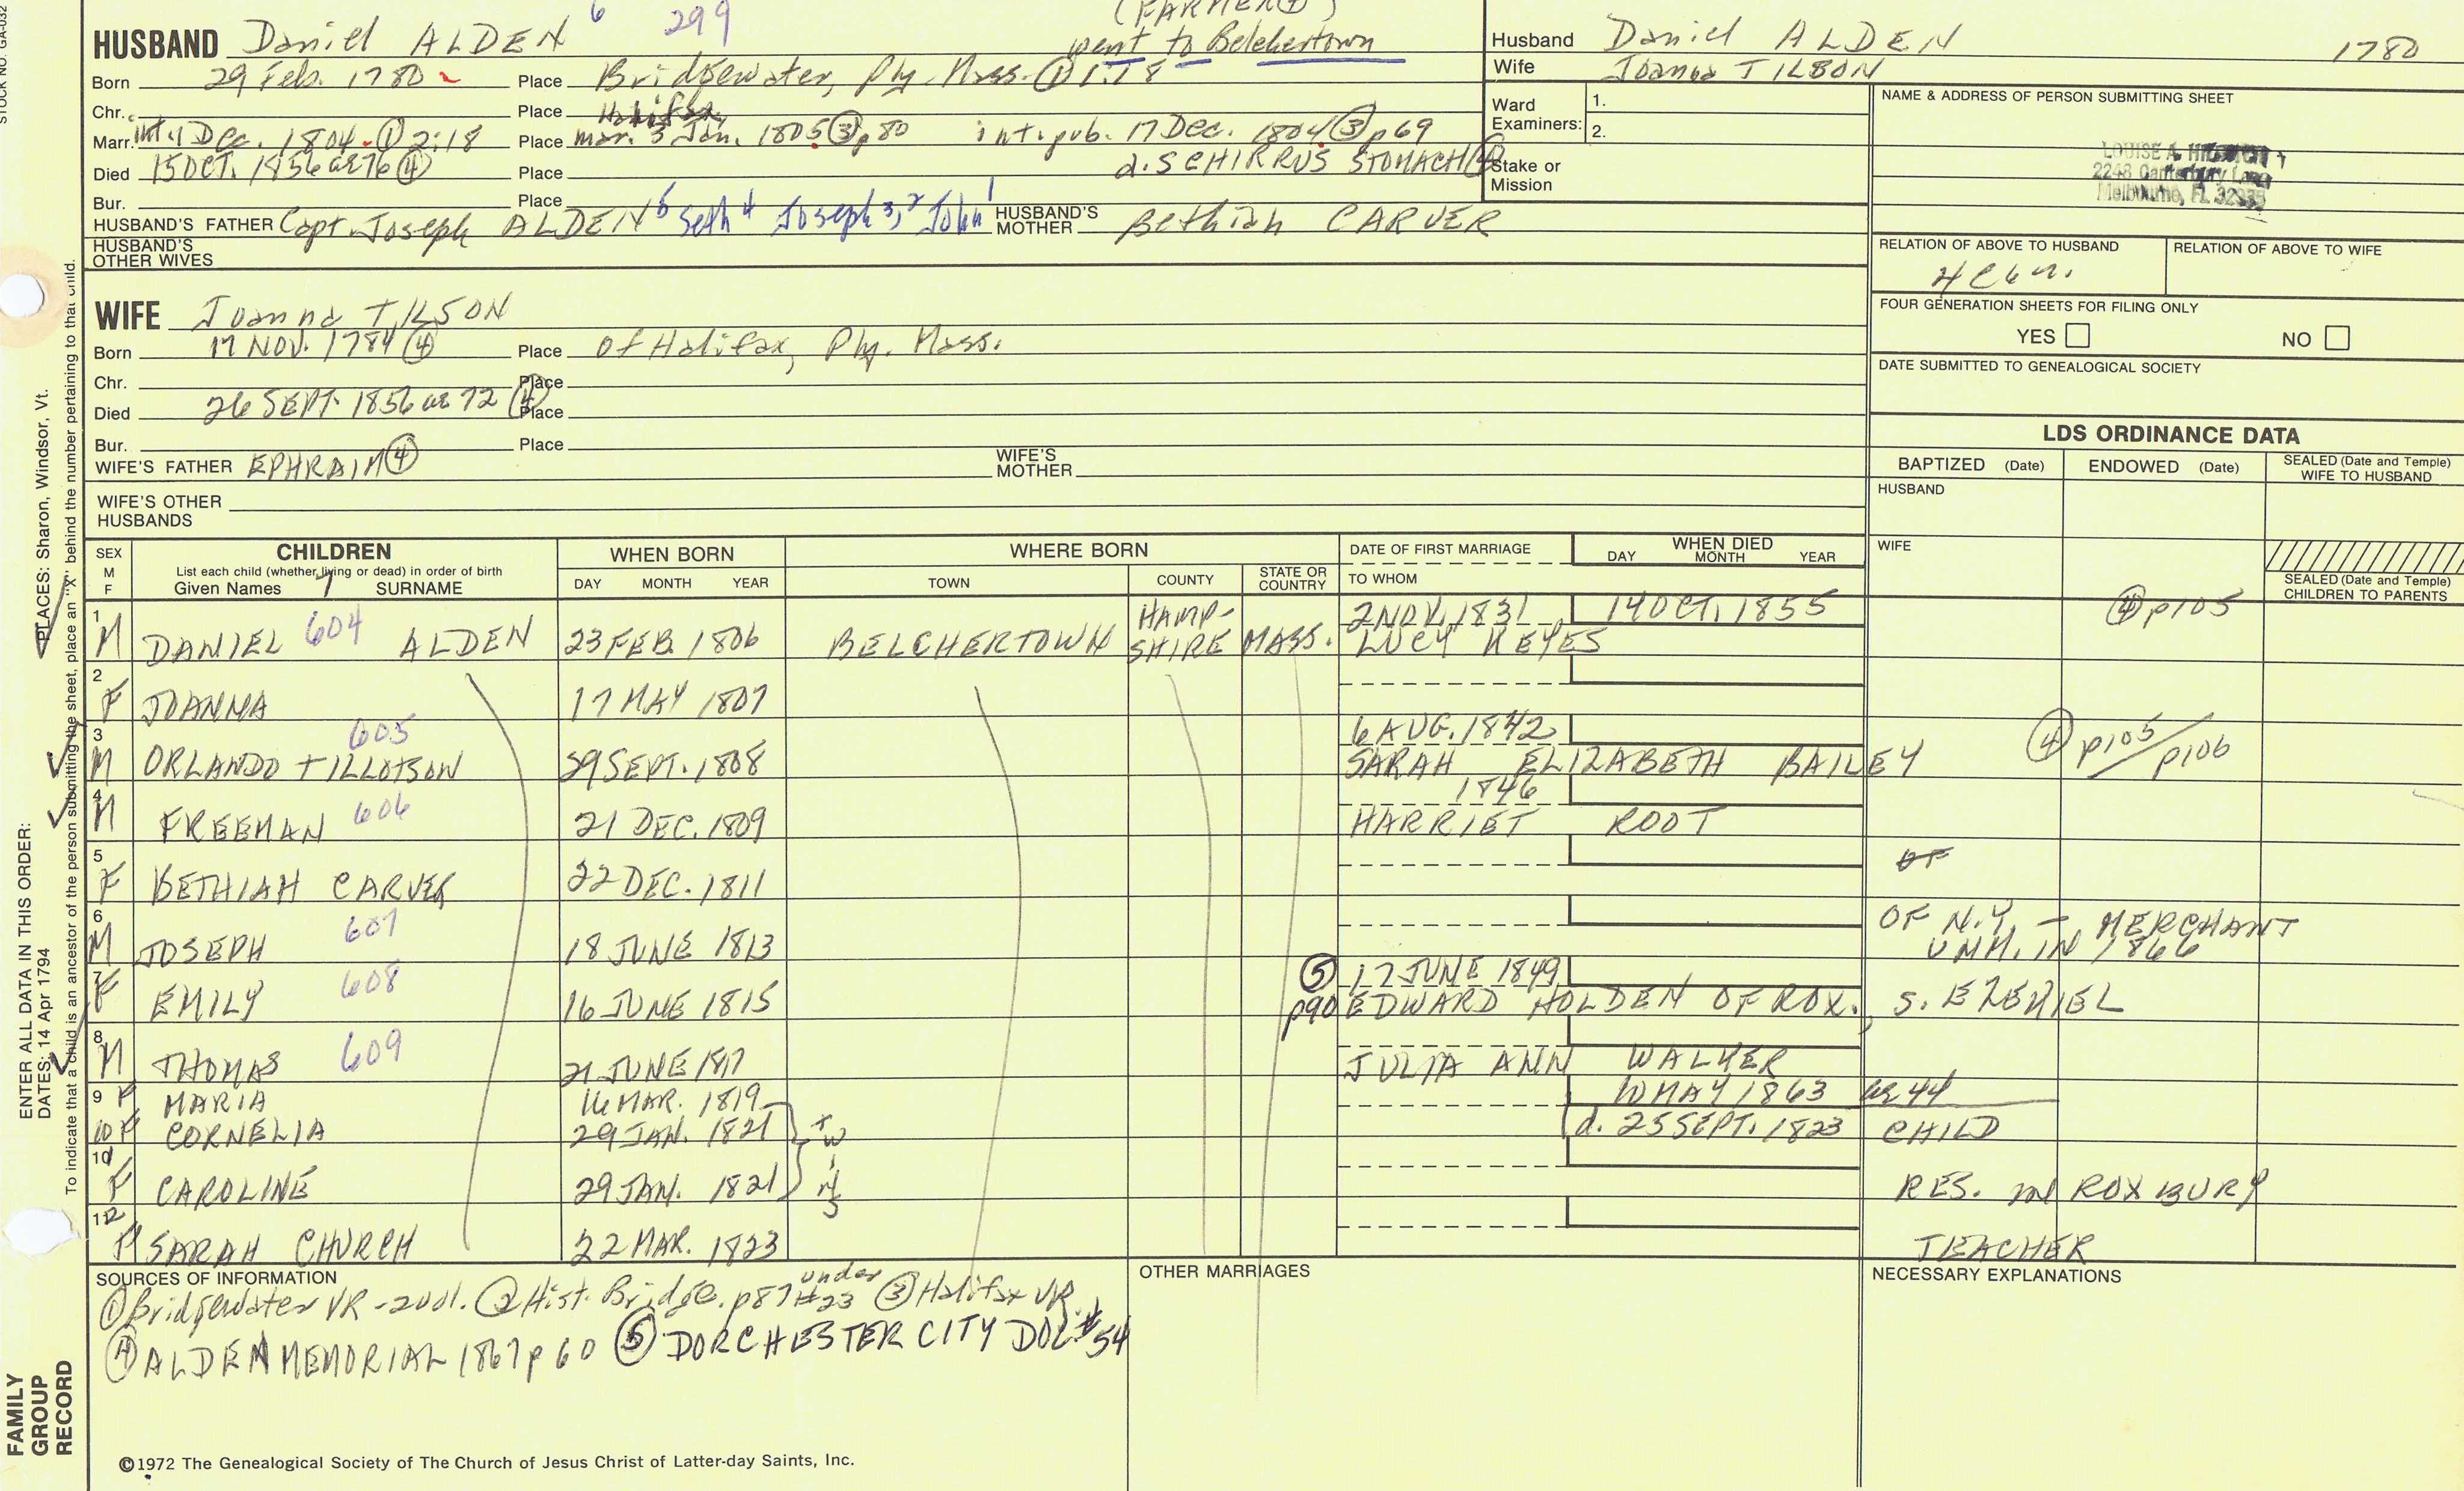 STOCK NO. GA-032
(FARMER ④)
HUSBAND Daniel ALDEN 6 299 went to Belchertown
Born 29 Feb. 1780 Place Bridgewater, Ply. Mass. ① 1:18
Chr. Place Halifax
Marr. int 4 Dec. 1804 ① 2:18 Place mar. 3 Jan. 1805 ③ p80 int. pub. 17 Dec. 1804 ③ p69
Died 15 OCT. 1856 ae 76 ④ Place d. SCHIRRUS STOMACH ④
Bur. Place
HUSBAND'S FATHER Capt. Joseph ALDEN 5 Seth 4 Joseph 3, 2 John 1 HUSBAND'S MOTHER Bethiah CARVER
HUSBAND'S OTHER WIVES
Husband Daniel ALDEN 1780
Wife Joanna TILSON
Ward Examiners: 1.
2.
Stake or Mission
NAME & ADDRESS OF PERSON SUBMITTING SHEET
LOUISE A.
2248 Canterbury Lane
Melbourne, FL 32935
RELATION OF ABOVE TO HUSBAND RELATION OF ABOVE TO WIFE
FOUR GENERATION SHEETS FOR FILING ONLY
YES NO
DATE SUBMITTED TO GENEALOGICAL SOCIETY
WIFE Joanna TILSON
Born 17 NOV. 1784 ④ Place of Halifax, Ply. Mass.
Chr. Place
Died 26 SEPT. 1856 ae 72 ④ Place
Bur. Place
WIFE'S FATHER EPHRAIM ④ WIFE'S MOTHER
WIFE'S OTHER HUSBANDS
LDS ORDINANCE DATA
BAPTIZED (Date) ENDOWED (Date) SEALED (Date and Temple) WIFE TO HUSBAND
HUSBAND
WIFE
SEALED (Date and Temple) CHILDREN TO PARENTS
SEX M F CHILDREN WHEN BORN WHERE BORN DATE OF FIRST MARRIAGE WHEN DIED
List each child (whether living or dead) in order of birth DAY MONTH YEAR
Given Names 7 SURNAME DAY MONTH YEAR TOWN COUNTY STATE OR COUNTRY TO WHOM
1 M DANIEL 604 ALDEN 23 FEB. 1806 BELCHERTOWN HAMPSHIRE MASS. 2 NOV. 1831 14 OCT. 1855 ④ p105
LUCY KEYES
2 F JOANNA 17 MAY 1807
3 M ORLANDO TILLOTSON 605 29 SEPT. 1808 6 AUG. 1842
SARAH ELIZABETH BAILEY ④ p105/p106
4 M FREEMAN 606 21 DEC. 1809 1846
HARRIET ROOT
5 F BETHIAH CARVER 22 DEC. 1811 OF
6 M JOSEPH 607 18 JUNE 1813 OF N.Y. - MERCHANT
UNM. IN 1866
7 F EMILY 608 16 JUNE 1815 ⑤ p90 17 JUNE 1849
EDWARD HOLDEN OF ROX., S. EZEKIEL
8 M THOMAS 609 21 JUNE 1817 JULIA ANN WALKER
9 F MARIA 16 MAR. 1819 10 MAY 1863 ae 44
10 F CORNELIA 29 JAN. 1821 twins d. 25 SEPT. 1823 CHILD
10 F CAROLINE 29 JAN. 1821 RES. in ROXBURY
12 F SARAH CHURCH 22 MAR. 1823 TEACHER
SOURCES OF INFORMATION OTHER MARRIAGES NECESSARY EXPLANATIONS
① Bridgewater VR - 2vol. ② Hist. Bridge. p87 under #23 ③ Halifax VR.
④ ALDEN MEMORIAL 1867 p 60 ⑤ DORCHESTER CITY DOC. #54
©1972 The Genealogical Society of The Church of Jesus Christ of Latter-day Saints, Inc.
ENTER ALL DATA IN THIS ORDER:
DATES: 14 Apr 1794 PLACES: Sharon, Windsor, Vt.
To indicate that a child is an ancestor of the person submitting the sheet, place an "X" behind the number pertaining to that child.
FAMILY GROUP RECORD